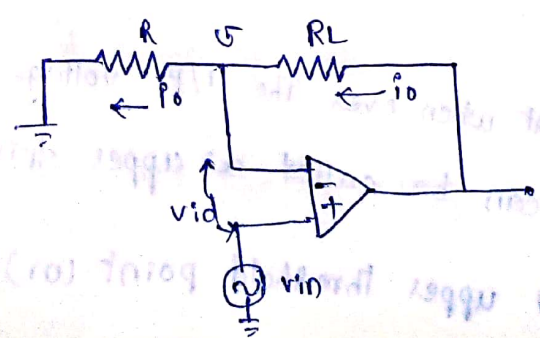 R
v
RL
io
io
-
+
vid
vin